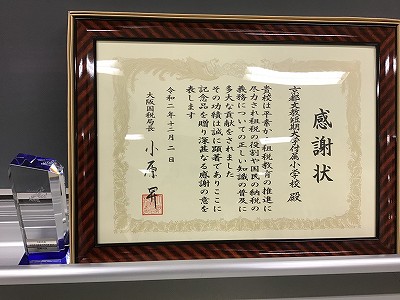 感謝状
京都文教短期大学付属小学校 殿
貴校は平素から租税教育の推進に
尽力され租税の役割や国民の納税の
義務についての正しい知識の普及に
多大な貢献をされました
その功績は誠に顕著でありここに
記念品を贈り深甚なる感謝の意を
表します
令和二年十二月二日
大阪国税局長 小原昇